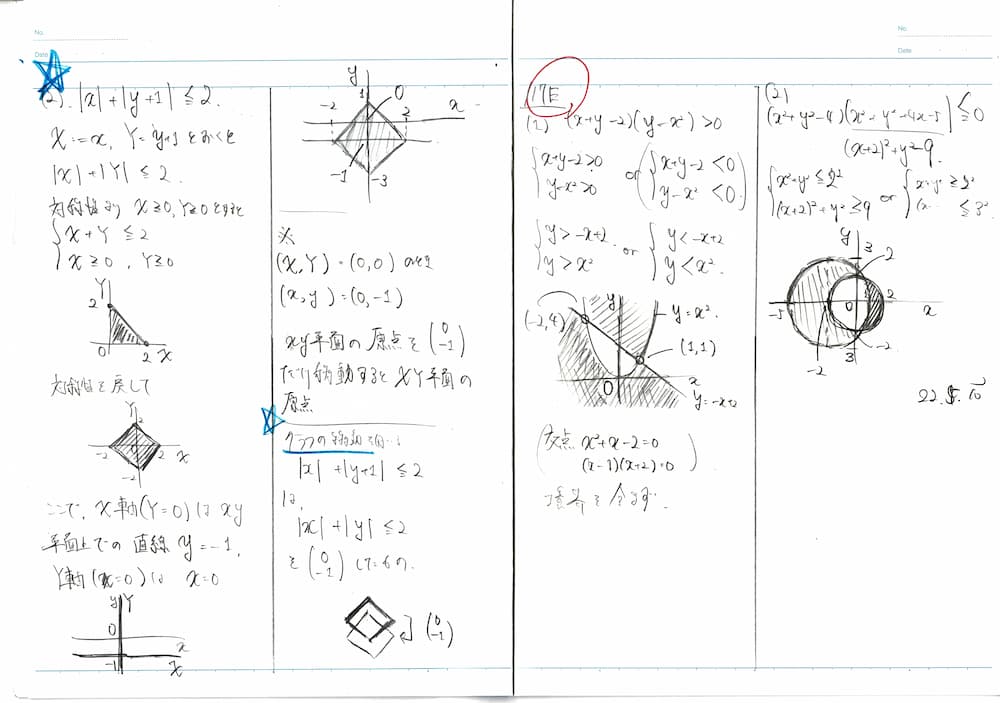 No.
Date
(2). |x|+|y+1| ≦ 2.
X:=x, Y=y+1とおくと
|X|+|Y| ≦ 2.
対称性より X≧0, Y≧0とすると
{X+Y ≦2
X≧0, Y≧0
Y
2
0
2
X
対称性を戻して
Y
2
-2
2
X
-2
ここで, X軸(Y=0)は xy
平面上での直線 y=-1,
Y軸(X=0)は x=0
y
Y
0
x
-1
X
y
1
0
-2
2
x
-1
-3
※
(X,Y)=(0,0) のとき
(x,y)=(0,-1)
xy平面の原点を (0 -1)
だけ移動すると XY平面の
原点
グラフの移動を用
|x|+|y+1| ≦2
は,
|x|+|y| ≦2
を (0 -1) したもの.
(0 -1)
17E
(1) (x+y-2)(y-x²)>0
{x+y-2>0
y-x²>0
or
({x+y-2<0
y-x²<0)
{y>-x+2
y>x²
or
{y<-x+2
y<x².
(-2,4)
y
y=x².
(1,1)
0
x
y=-x+2
(交点 x²+x-2=0
(x-1)(x+2)=0)
No.
Date
(2)
(x²+y²-4)(x²+y²+4x-5)≦0
(x+2)²+y²-9.
{x²+y²≦2²
(x+2)²+y²≧9
or
{x²+y²≧2²
(x… ≦3²
y
3
2
-5
0
2
x
-2
-3
-2
22.5.10